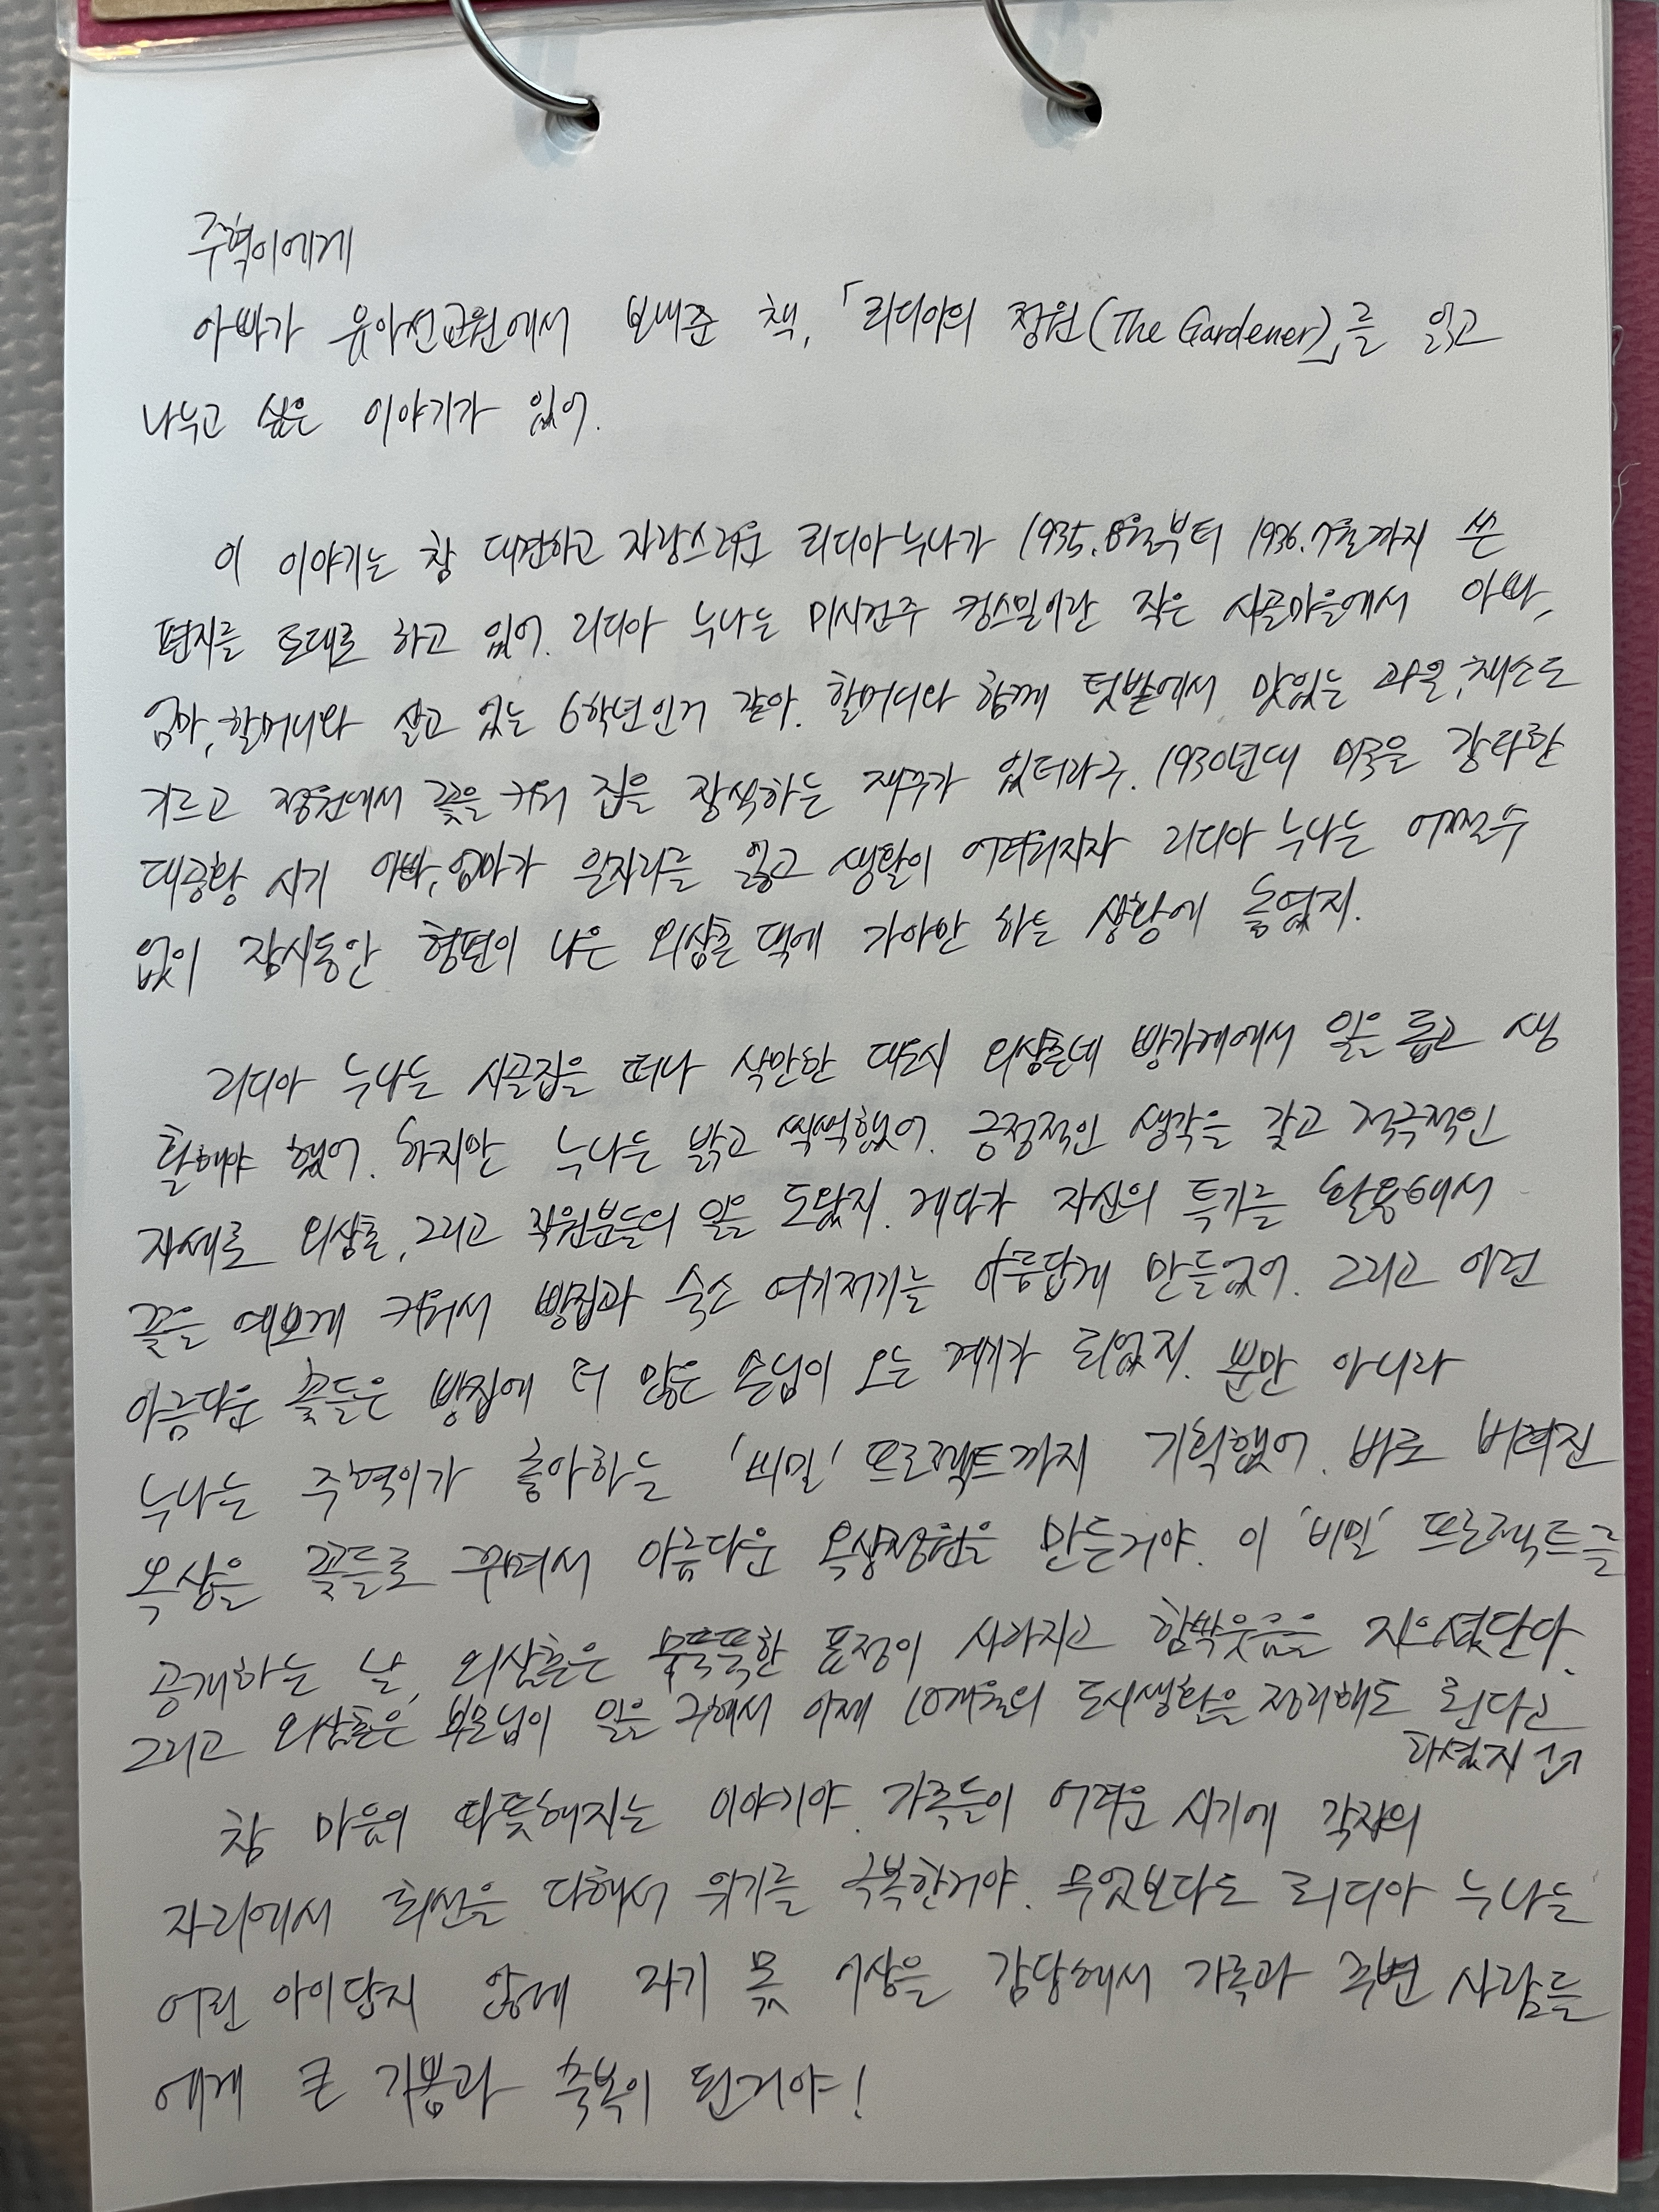 주혁이에게
아빠가 유아선교원에서 보내준 책, 「리디아의 정원(The Gardener)」를 읽고
나누고 싶은 이야기가 있어.
이 이야기는 참 대견하고 자랑스러운 리디아 누나가 1935.8월부터 1936.7월까지 쓴
편지를 토대로 하고 있어. 리디아 누나는 미시건주 킹스밀이란 작은 시골마을에서 아빠,
엄마, 할머니와 살고 있는 6학년인거 같아. 할머니와 함께 텃밭에서 맛있는 과일, 채소도
기르고 정원에서 꽃을 키워 집을 장식하는 재주가 있더라구. 1930년대 미국은 강타한
대공황 시기 아빠, 엄마가 일자리를 잃고 생활이 어려워지자 리디아 누나는 어쩔수
없이 잠시동안 형편이 나은 외삼촌 댁에 가야만 하는 상황에 놓였지.
리디아 누나는 시골집을 떠나 삭만한 대도시 외삼촌네 빵가게에서 일을 돕고 생
활해야 했어. 하지만 누나는 밝고 씩씩했어. 긍정적인 생각을 갖고 적극적인
자세로 외삼촌, 그리고 직원분들의 일을 도왔지. 게다가 자신의 특기를 활용해서
꽃을 예쁘게 키워서 빵집과 숙소 여기저기를 아름답게 만들었어. 그리고 이런
아름다운 꽃들은 빵집에 더 많은 손님이 오는 계기가 되었지. 뿐만 아니라
누나는 주혁이가 좋아하는 '비밀' 프로젝트까지 기획했어. 바로 버려진
옥상을 꽃들로 꾸며서 아름다운 옥상정원을 만든거야. 이 '비밀' 프로젝트를
공개하는 날, 외삼촌은 무뚝뚝한 표정이 사라지고 함박웃음을 지으셨단다.
그리고 외삼촌은 부모님이 일을 구해서 이제 10개월의 도시생활을 정리해도 된다고
하셨지
참 마음이 따뜻해지는 이야기야. 가족들이 어려운 시기에 각자의
자리에서 최선을 다해서 위기를 극복한거야. 무엇보다도 리디아 누나는
어린 아이답지 않게 자기 몫 이상을 감당해서 가족과 주변 사람들
에게 큰 기쁨과 축복이 된거야!